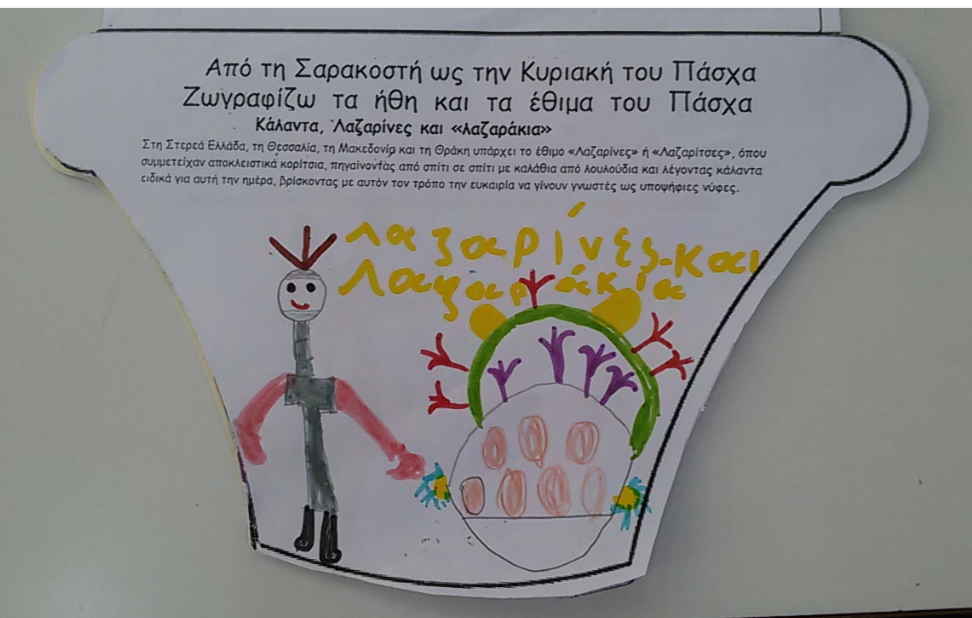 Από τη Σαρακοστή ως την Κυριακή του Πάσχα
Ζωγραφίζω τα ήθη και τα έθιμα του Πάσχα
Κάλαντα, Λαζαρίνες και «λαζαράκια»
Στη Στερεά Ελλάδα, τη Θεσσαλία, τη Μακεδονία και τη Θράκη υπάρχει το έθιμο «Λαζαρίνες» ή «Λαζαρίτσες», όπου
συμμετείχαν αποκλειστικά κορίτσια, πηγαίνοντας από σπίτι σε σπίτι με καλάθια από λουλούδια και λέγοντας κάλαντα
ειδικά για αυτή την ημέρα, βρίσκοντας με αυτόν τον τρόπο την ευκαιρία να γίνουν γνωστές ως υποψήφιες νύφες.
Λαζαρίνες-και
Λαζαράκια